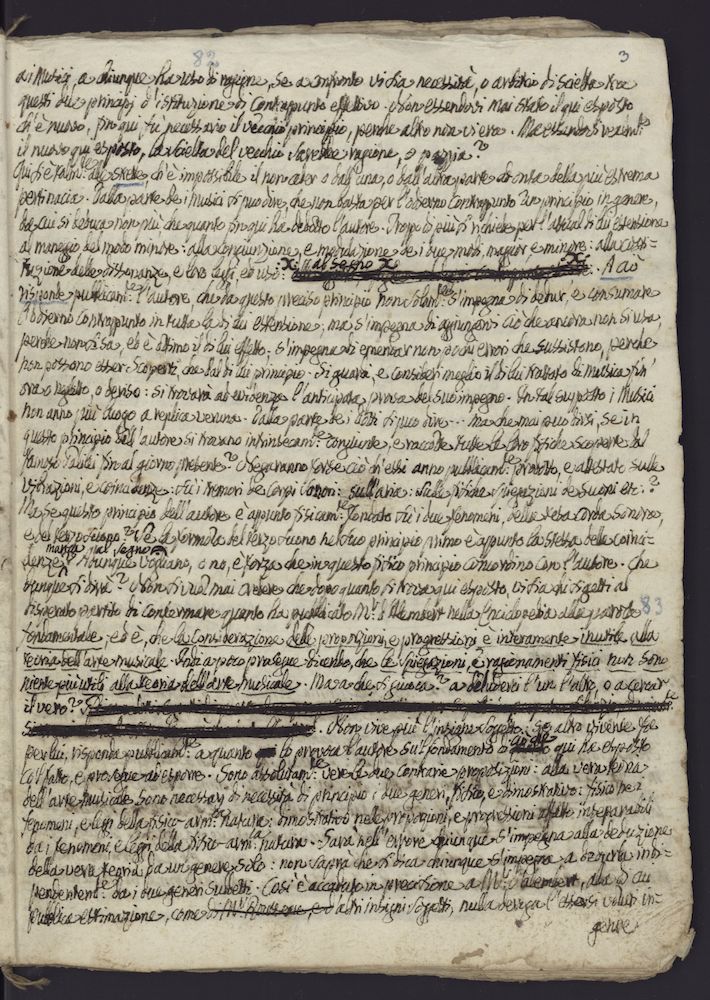 82
3
ai Musici, a chiunque ha uso di ragione, se a confronto vi sia necessità, o arbitrio di scielta tra
questi due principj d'istituzione di Contrappunto effettivo. Non essendovi mai stato il qui esposto
ch'è nuovo, fin qui fù necessario il vecchio principio, perche altro non vi era. Ma essendovi
il nuovo qui esposto, la scielta del vecchio sarebbe ragione, o pazzia?
Qui è è impossibile il non ceder o dall'una, o dall'altra parte ad onta della più estrema
pertinacia. Dalla parte dei Musici si può dire, che non basta per l'odierno Contrappunto un principio in genere,
da cui si deduca non più che quanto fin qui ha dedotto l'autore. Troppo di più si richiede per l'attual di lui estensione
al maneggio del modo minore: alla congiunzione, e modulazione de i due modi, maggior, e minore: alla costi-
tuzione delle dissonanze, e loro leggi, ed usi: X al segno X . A ciò
risponde l'autore, che da questo preciso principio non s'impegna di dedur, e consumare
l'odierno Contrappunto in tutta la di lui estensione, ma s'impegna di aggiungervi ciò che ancora non si usa,
perche non si sa, ed è ottimo il di lui effetto. S'impegna di emendar non pochi errori che sussistono, perche
non possono esser scoperti che dal di lui principio. Si guardi, e consideri meglio il di lui trattato di Musica fin
ora o negletto, o deriso: si troverà ad evidenza l'anticipata prova del suo impegno. In tal supposto i Musici
non anno più luogo a replica veruna. Dalla parte de i Dotti si può dire... ma che mai può dirsi, se in
questo principio dell'autore si trovano congiunte, e raccolte tutte le loro fisiche scoperte dal
famoso Galilei fin al giorno presente? Negaranno forse ciò ch'essi anno e attestato sulle
vibrazioni, e coincidenze: su i tremori de Corpi sonori: sull'aria: sulle fisiche spiegazioni de suoni etc.?
Ma se questo principio dell'autore è appunto fondato sù i due fenomeni, della tesa corda sonora,
e del terzo suono? Se la formola del terzo suono nel suo principio primo è appunto la stessa delle coinci-
denze? manca nel segno Adunque vogliano, o no, è forza che in questo fisico principio concordino con l'autore. Che
dunque si dirà? Non si vuol mai credere che dopo quanto si trova qui esposto, vi sia chi si getti al
disperato partito di confermare quanto ha publicato Mr. d'Alembert nella Enciclopedia alla parola
83
fondamentale, ed è, che la considerazione delle proporzioni, e progressioni è interamente inutile alla
teoria dell'arte musicale. Indi a poco prosegue dicendo, che le spiegazioni, e ragionamenti fisici non sono
niente più utili alla teoria dell'arte musicale. Ma a che si giuoca? a deluderci l'un l'altro, o a cercar
il vero?
. Non vive più l'insigne soggetto. Se altro vivente v'è
per lui, risponda a quanto lo provoca l'autore sul fondamento di quanto qui ha esposto
col fatto, e prosegue ad esporre. Sono vere le due contrarie proposizioni: alla vera teoria
dell'arte musicale sono necessarj di necessità di principio i due generi, fisico, e dimostrativo: fisico nei
fenomeni, e leggi della fisico-arm.ca natura: dimostrativo nelle proporzioni, e progressioni affatto inseparabili
da i fenomeni, e leggi della fisico-arm.ca natura. Sarà nell'errore chiunque s'impegna alla deduzione
della vera teoria da un genere solo: non saprà che si dica chiunque s'impegna a dedurla indi-
da i due generi suddetti. Così è accaduto in precisione a Mr. d'Alembert, alla di cui
publica estimazione, come di Mr. Rousseau, e d'altri insigni soggetti, nulla deroga l'essersi voluti in-
gerire